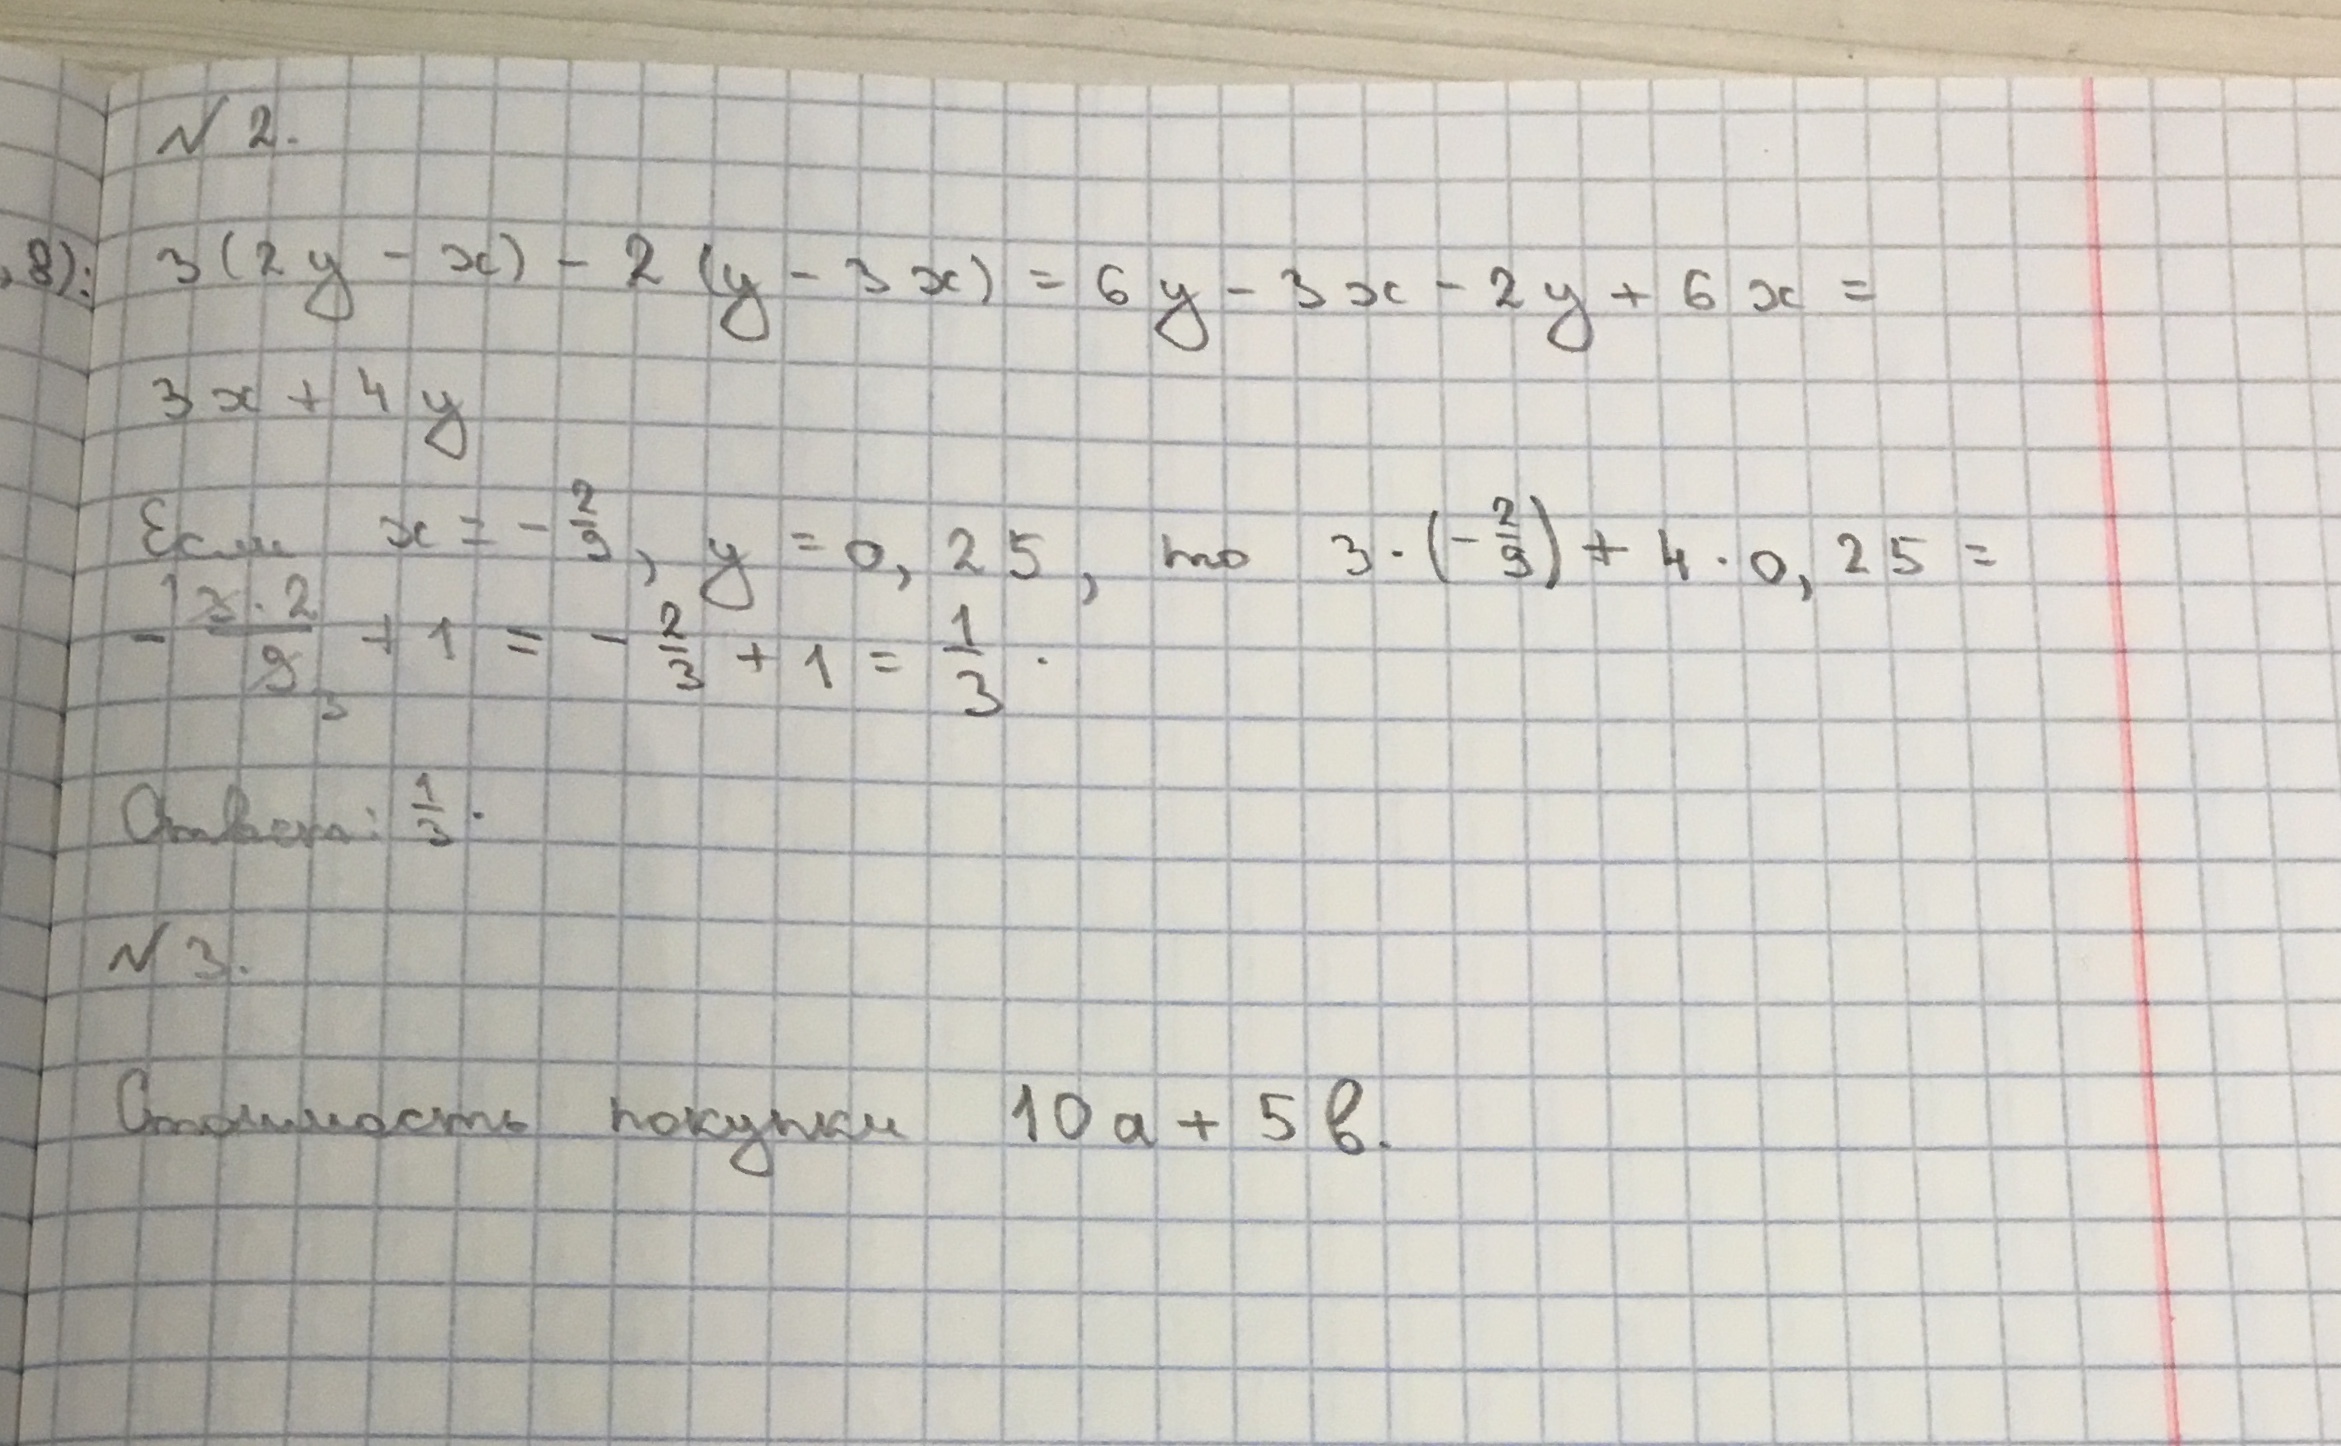 № 2.
,8):
3(2y - x) - 2(y - 3x) = 6y - 3x - 2y + 6x =
3x + 4y
Если x = -2/9, y = 0,25, то 3·(-2/9) + 4·0,25 =
- 3·2/9 + 1 = -2/3 + 1 = 1/3.
1 3
Ответ: 1/3.
№ 3.
Стоимость покупки 10a + 5в.